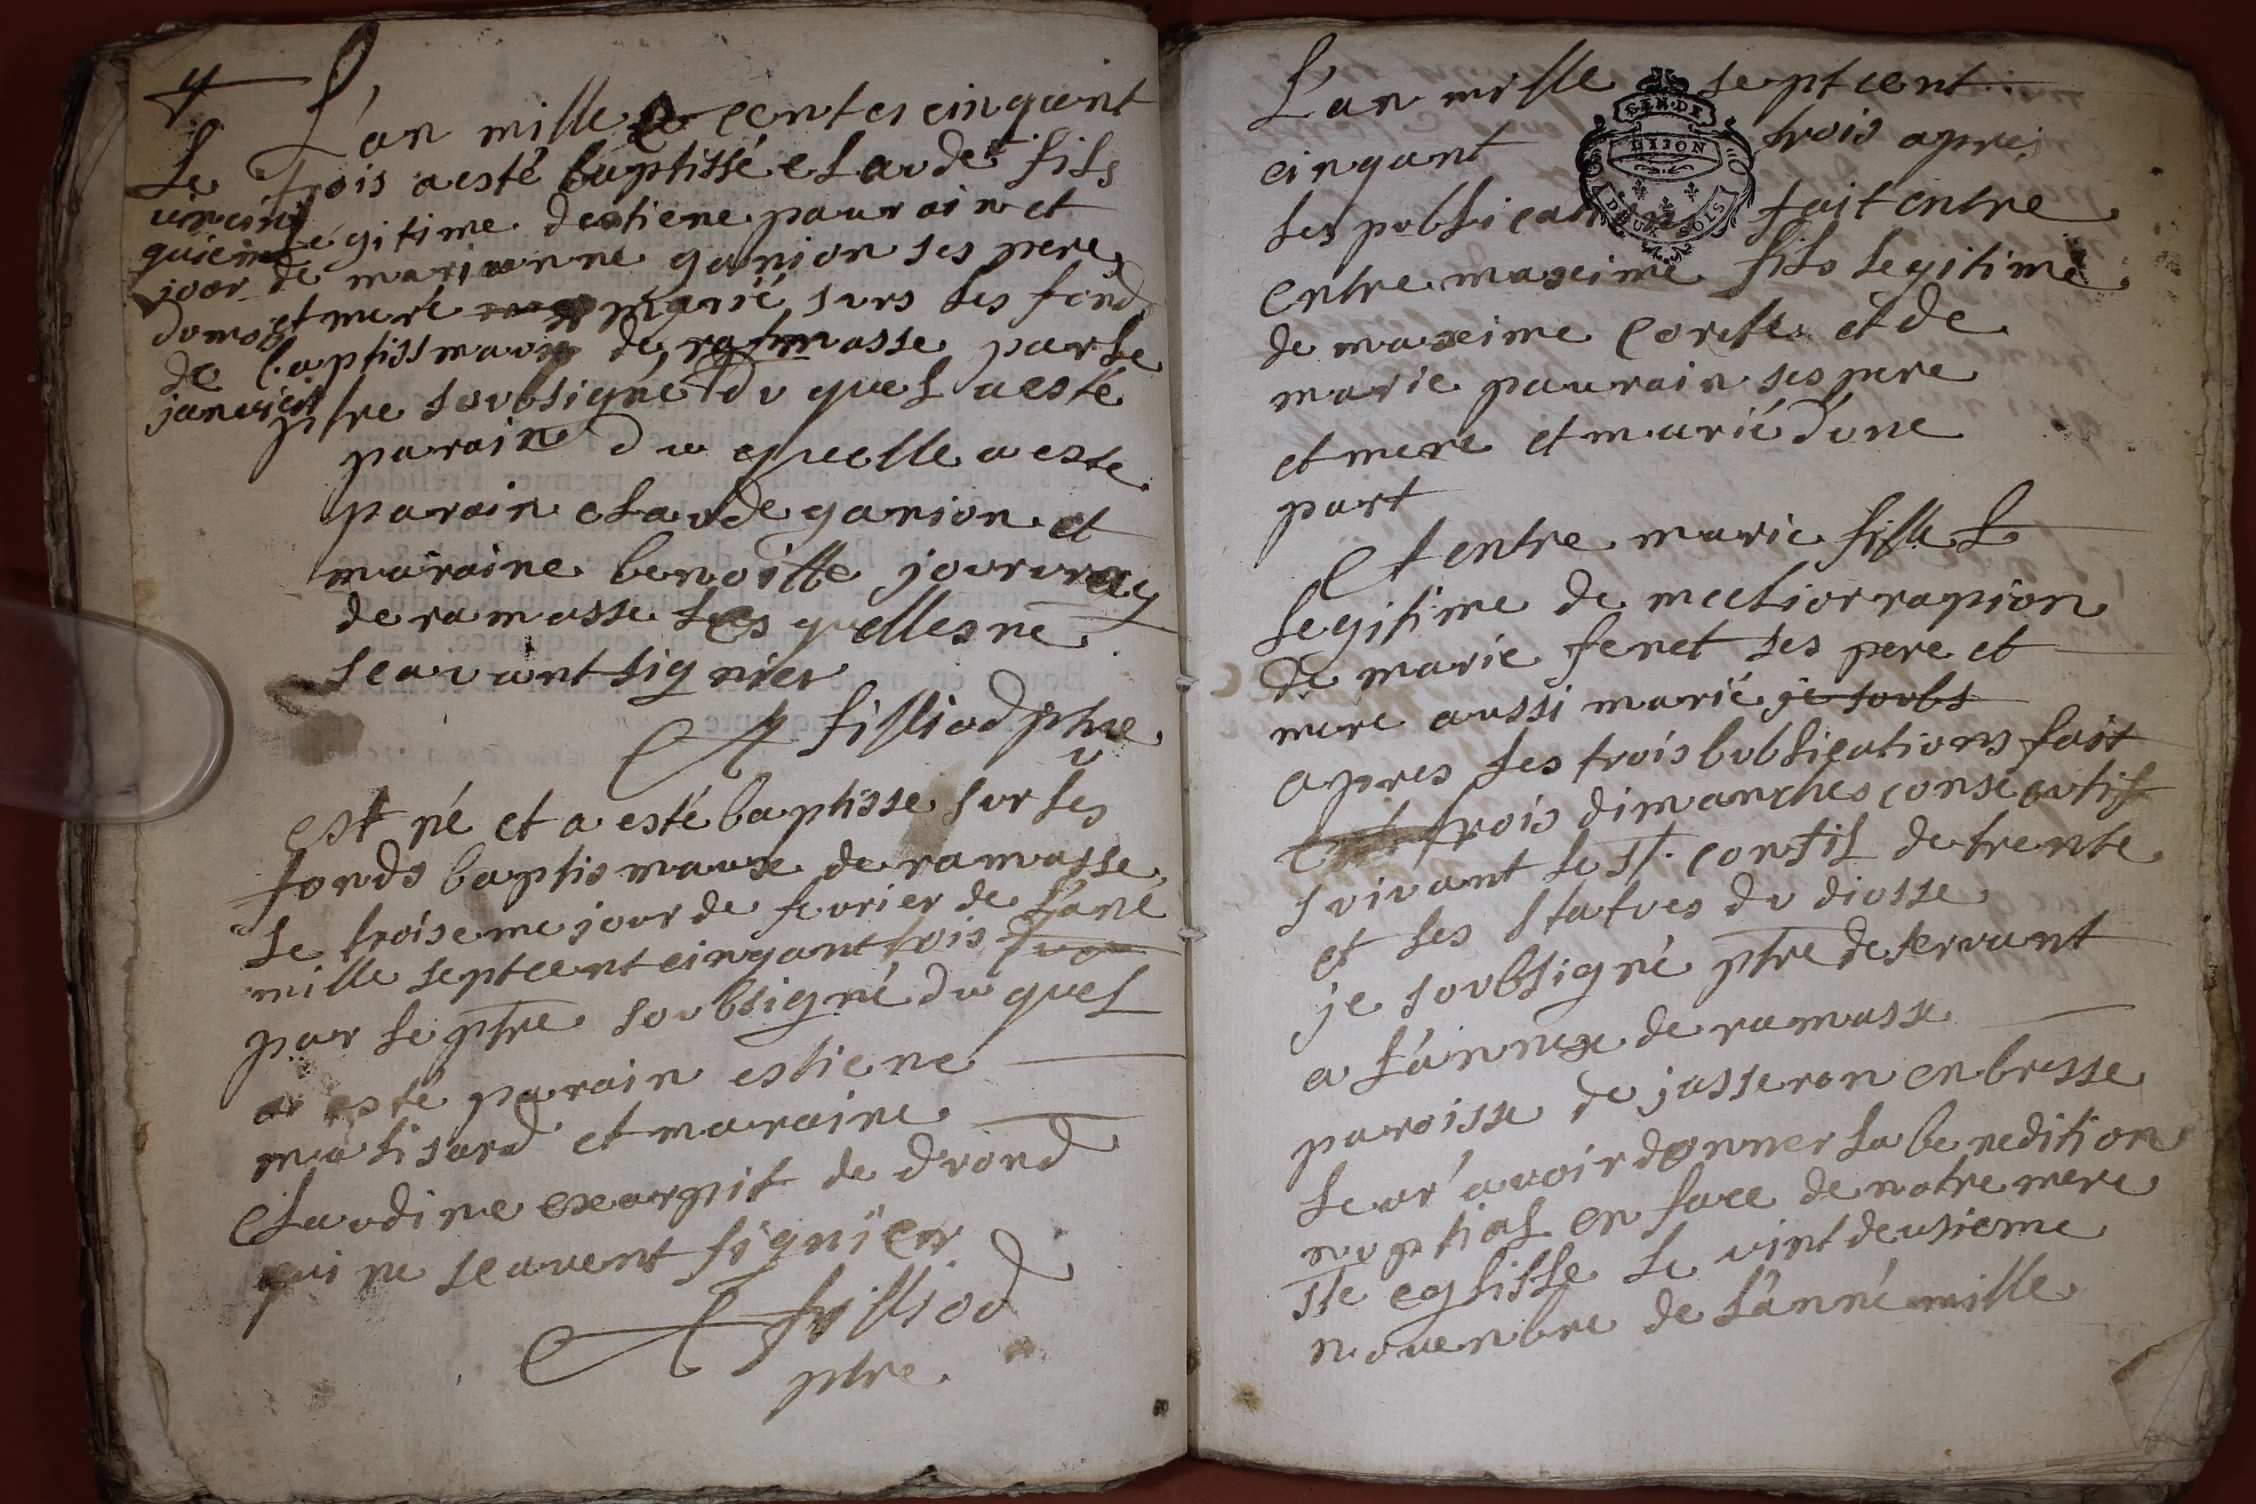 L'an mille centes cinquint
trois a esté baptissé claude fils
Le
vincint
quiem
jour
du mois
de
janvier
legitime destiene paurain et
de marianne ganion ses pere
et mere marié surs les fond
baptissmaux de ramasse par le
ptre soubsigné du quel a esté
parain du quelle a este
parain claude ganion et
maraine benoitte jourvray
de ramasse les quelles ne
scavant signier
filliod ptre
est né et a esté baptisse sur les
fonds baptismaux de ramasse
le troisieme jour de fevrier de l'ané
mille septcent cinqant trois
par le ptre soubsigné du quel
a esté parain estiene
matisard et maraine
claudine exarpit de drond
qui ne scavent signier
filliod
ptre
L'an mille septcent
GEN. DE
DIJON
DEUX SOLS
cinqant trois apres
les publications fait entre
entre maxime fils legitime
de maxime corelle et de
marie paurain ses pere
et mere et marié d'une
part
Et entre marie fille L
legitime de melior rapion
de marie fenet ses pere et
mere aussi marié je soubs
apres les trois bublications fait
trois dimanches consecutif
suivant le st. consil de trente
et les statues du diosse
je soubsigné ptre deservant
a l'annexe de ramasse
paroisse de jasseron en bresse
leur avoir donner la benedition
nuptial en face de notre mere
ste eglisse le vint deusieme
novenbre de l'anné mille